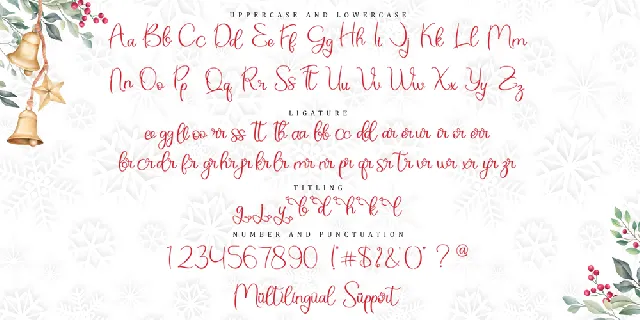 UPPERCASE AND LOWERCASE
Aa Bb Cc Dd Ee Ff Gg Hh Ii Jj Kk Ll Mm
Nn Oo Pp Qq Rr Ss Tt Uu Vv Ww Xx Yy Zz
LIGATURE
ee gg ll oo rr ss tt bb aa bb cc dd ar er ur ir or
br cr dr fr gr hr jr kr lr mr nr pr qr sr tr vr wr xr yr zr
TITLING
g j y b d h k l
NUMBER AND PUNCTUATION
1234567890 ("#$!&()" ? @
Multilingual Support